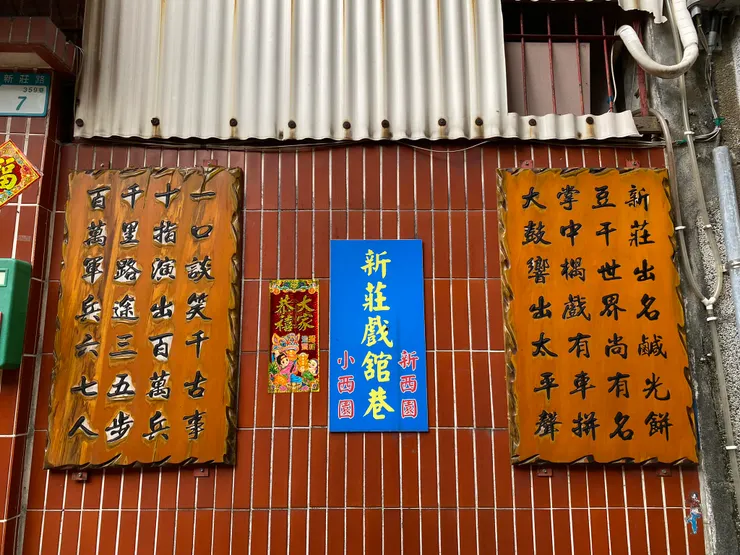 新莊路
359巷
7
福
一口談笑千古事
十指演出百萬兵
千里路途三五步
百萬軍兵六七人
大家
恭禧
新西園
新莊戲館巷
小西園
新莊出名鹹光餅
豆干世界尚有名
掌中戲有車拼
大鼓響出太平聲